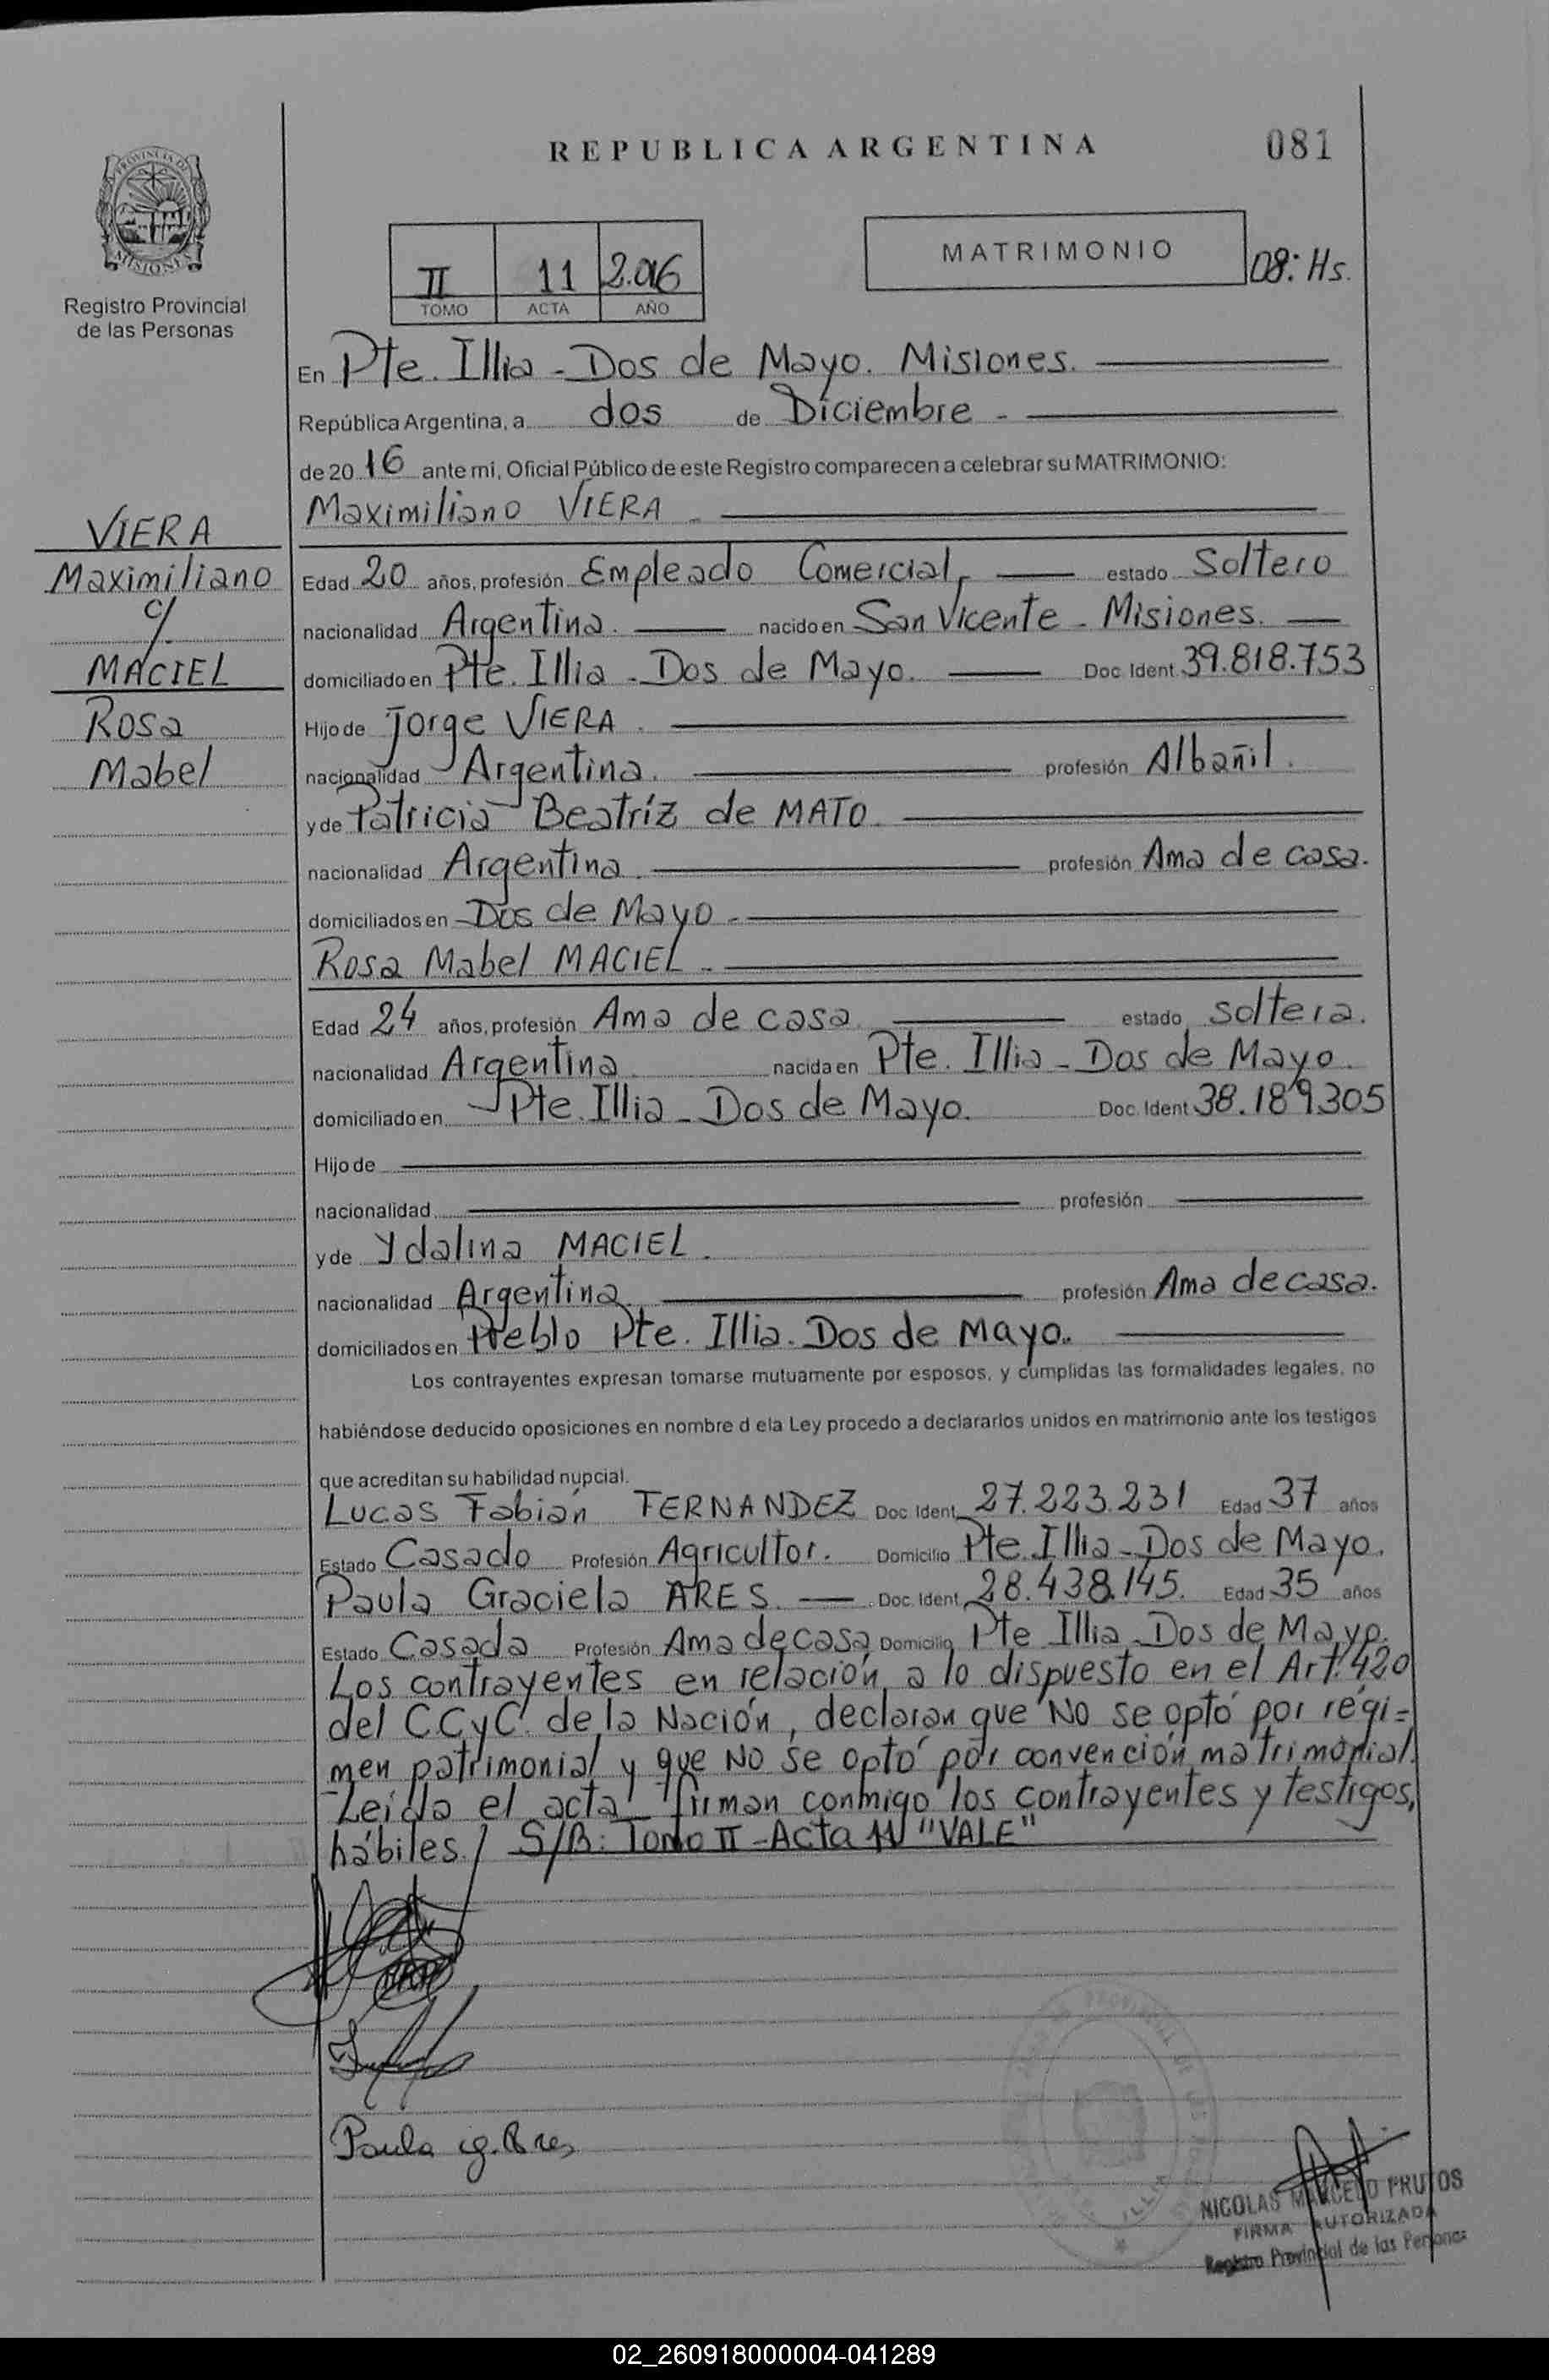 REPUBLICA ARGENTINA
081
PROVINCIA DE
MISIONES
Registro Provincial
de las Personas
II 11 2.016
TOMO ACTA AÑO
MATRIMONIO
08: Hs.
En Pte. Illia - Dos de Mayo. Misiones.
República Argentina, a dos de Diciembre -
de 20 16 ante mi, Oficial Público de este Registro comparecen a celebrar su MATRIMONIO:
VIERA
Maximiliano
c/.
MACIEL
Rosa
Mabel
Maximiliano VIERA -
Edad 20 años, profesión Empleado Comercial, estado Soltero
nacionalidad Argentina. nacido en San Vicente - Misiones.
domiciliado en Pte. Illia - Dos de Mayo. Doc. Ident 39.818.753
Hijo de Jorge VIERA.
nacionalidad Argentina. profesión Albañil.
y de Patricia Beatríz de MATO.
nacionalidad Argentina. profesión Ama de casa.
domiciliados en Dos de Mayo -
Rosa Mabel MACIEL -
Edad 24 años, profesión Ama de casa. estado soltera.
nacionalidad Argentina nacida en Pte. Illia - Dos de Mayo.
domiciliado en Pte. Illia - Dos de Mayo. Doc. Ident 38.189.305
Hijo de
nacionalidad profesión
y de Ydalina MACIEL.
nacionalidad Argentina. profesión Ama de casa.
domiciliados en Pueblo Pte. Illia. Dos de Mayo.
Los contrayentes expresan tomarse mutuamente por esposos, y cumplidas las formalidades legales, no
habiéndose deducido oposiciones en nombre d ela Ley procedo a declararlos unidos en matrimonio ante los testigos
que acreditan su habilidad nupcial.
Lucas Fabián FERNANDEZ Doc. Ident. 27.223.231 Edad 37 años
Estado Casado Profesión Agricultor. Domicilio Pte. Illia - Dos de Mayo.
Paula Graciela ARES. Doc. Ident. 28.438.145. Edad 35 años
Estado Casada Profesión Ama de casa Domicilio Pte Illia - Dos de Mayo.
Los contrayentes en relación a lo dispuesto en el Art. 420
del C.C.y C. de la Nación, declaran que NO se optó por régi=
men patrimonial y que NO se optó por convención matrimonial.
Leída el acta firman conmigo los contrayentes y testigos,
hábiles / S/B: Tomo II - Acta 11 "VALE"
Paula g. Ares
ILLIA
NICOLAS MARCELO FRUTOS
FIRMA AUTORIZADA
Registro Provincial de las Personas
02_260918000004-041289